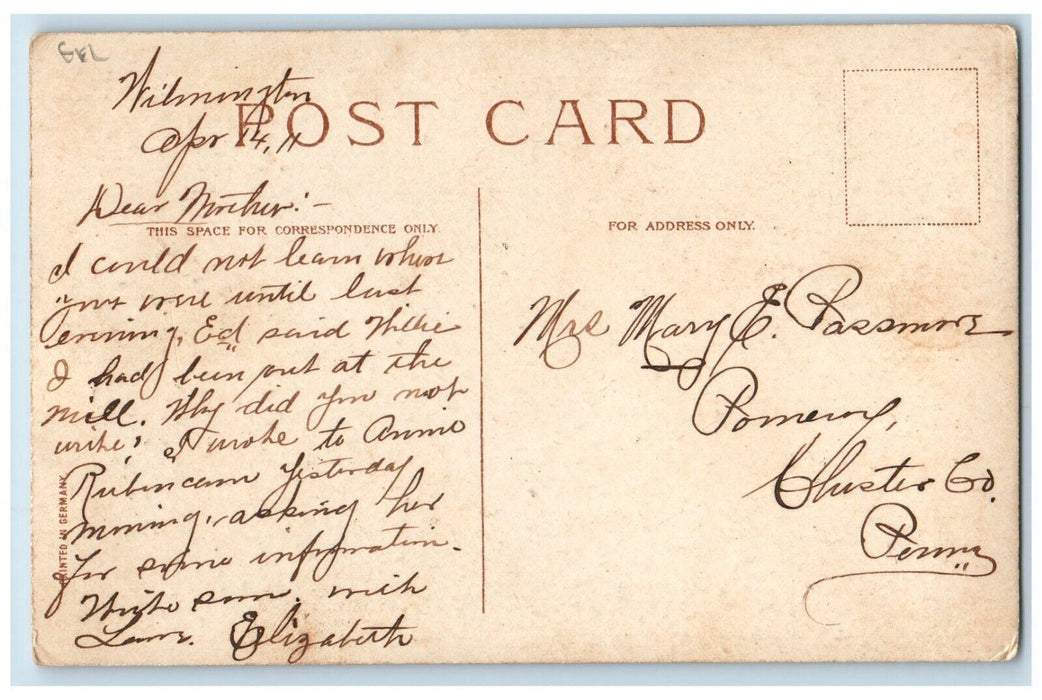 Wilmington
POST CARD
Apr 14, 11
Dear Mother:-
THIS SPACE FOR CORRESPONDENCE ONLY.
I could not learn where
you were until last
evening, Ed said Willie
& had been out at the
mill. Why did you not
write? I wrote to Annie
Rubincam yesterday
morning, asking her
for some information.
Write soon. with
Love. Elizabeth
PRINTED IN GERMANY
FOR ADDRESS ONLY.
Mrs Mary E. Passmore
Pomeroy,
Chester Co.
Penna